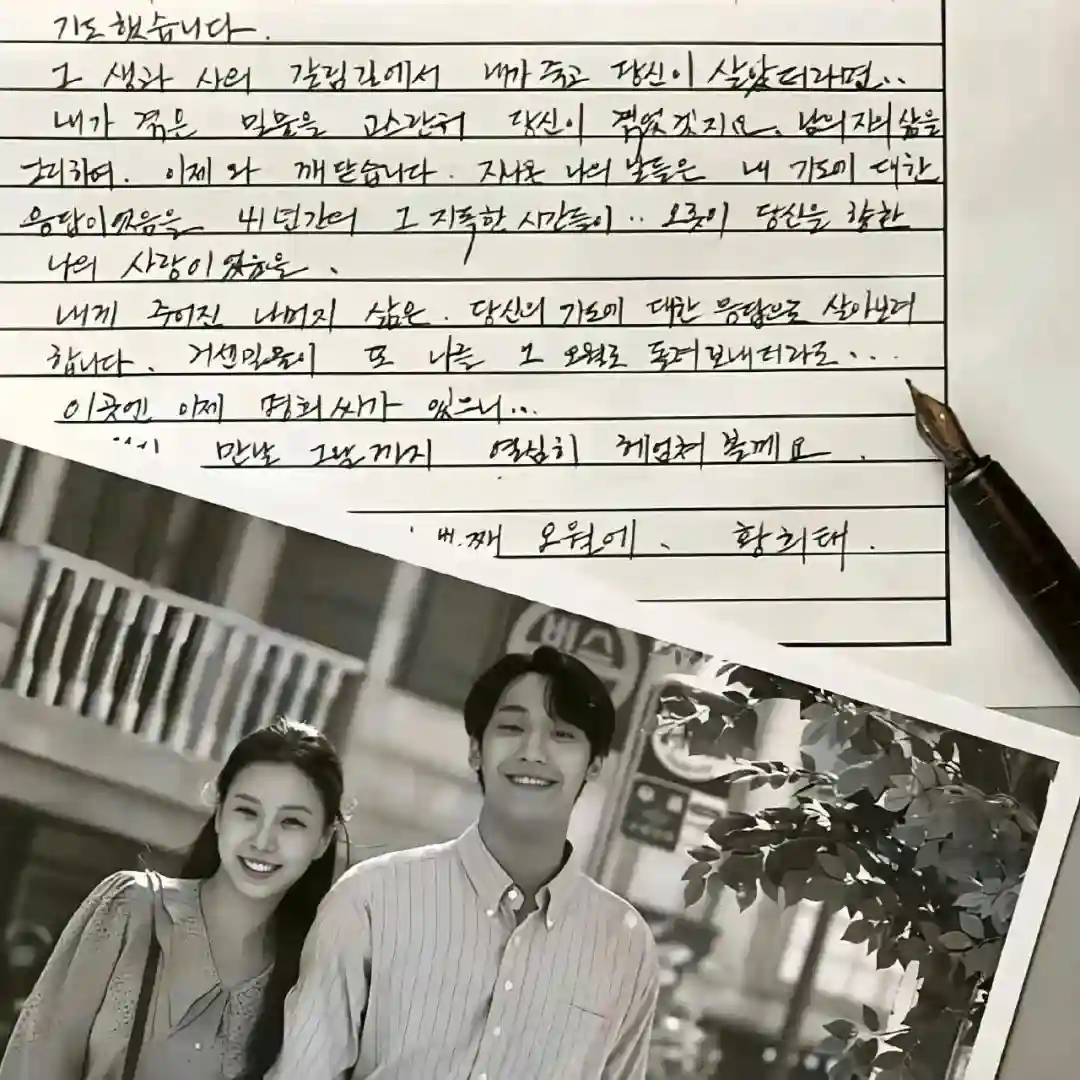 기도했습니다.
그 생과 사의 갈림길에서 내가 죽고 당신이 살았더라면...
내가 겪은 밀물을 고스란히 당신이 겪었겠지요. 남은자의 삶을
말이에요. 이제와 깨닫습니다. 지나온 나의 날들은 내 기도에 대한
응답이었음을. 41년간의 그 지독한 시간들이.. 오롯이 당신을 향한
나의 사랑이었음을.
내게 주어진 나머지 삶은. 당신의 기도에 대한 응답으로 살아보려
합니다. 거센밀물이 또 나를 그 오월로 돌려보내더라도....
이곳엔 이제 명희씨가 있으니...
만날 그날까지 열심히 헤엄쳐볼께요.
번째 오월에. 황희태.
비스